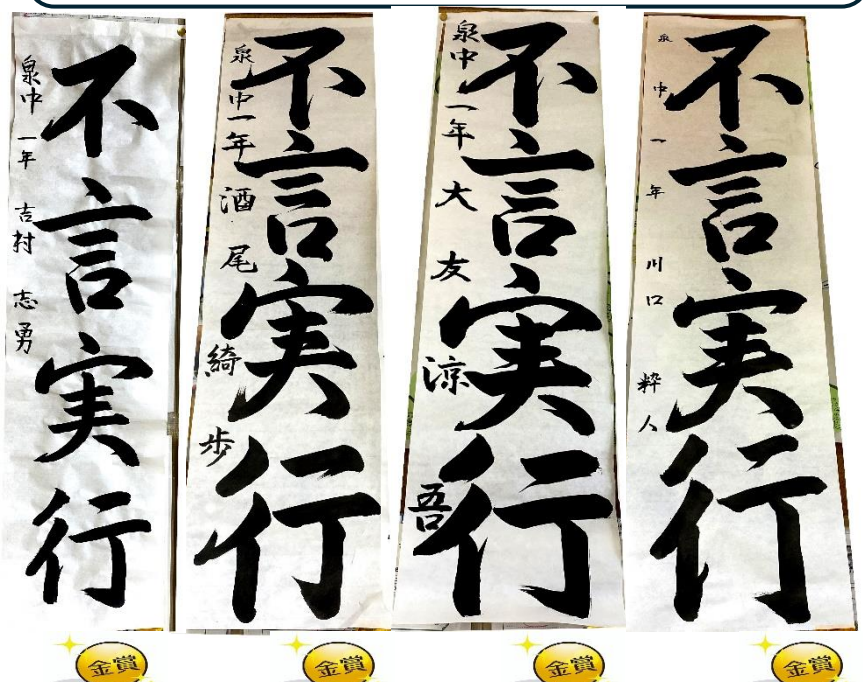 不言実行
泉中一年 吉村 志勇
不言実行
泉中一年 酒尾 綺歩
不言実行
泉中一年 大友 涼吾
不言実行
泉中一年 川口 粋人
金賞
金賞
金賞
金賞